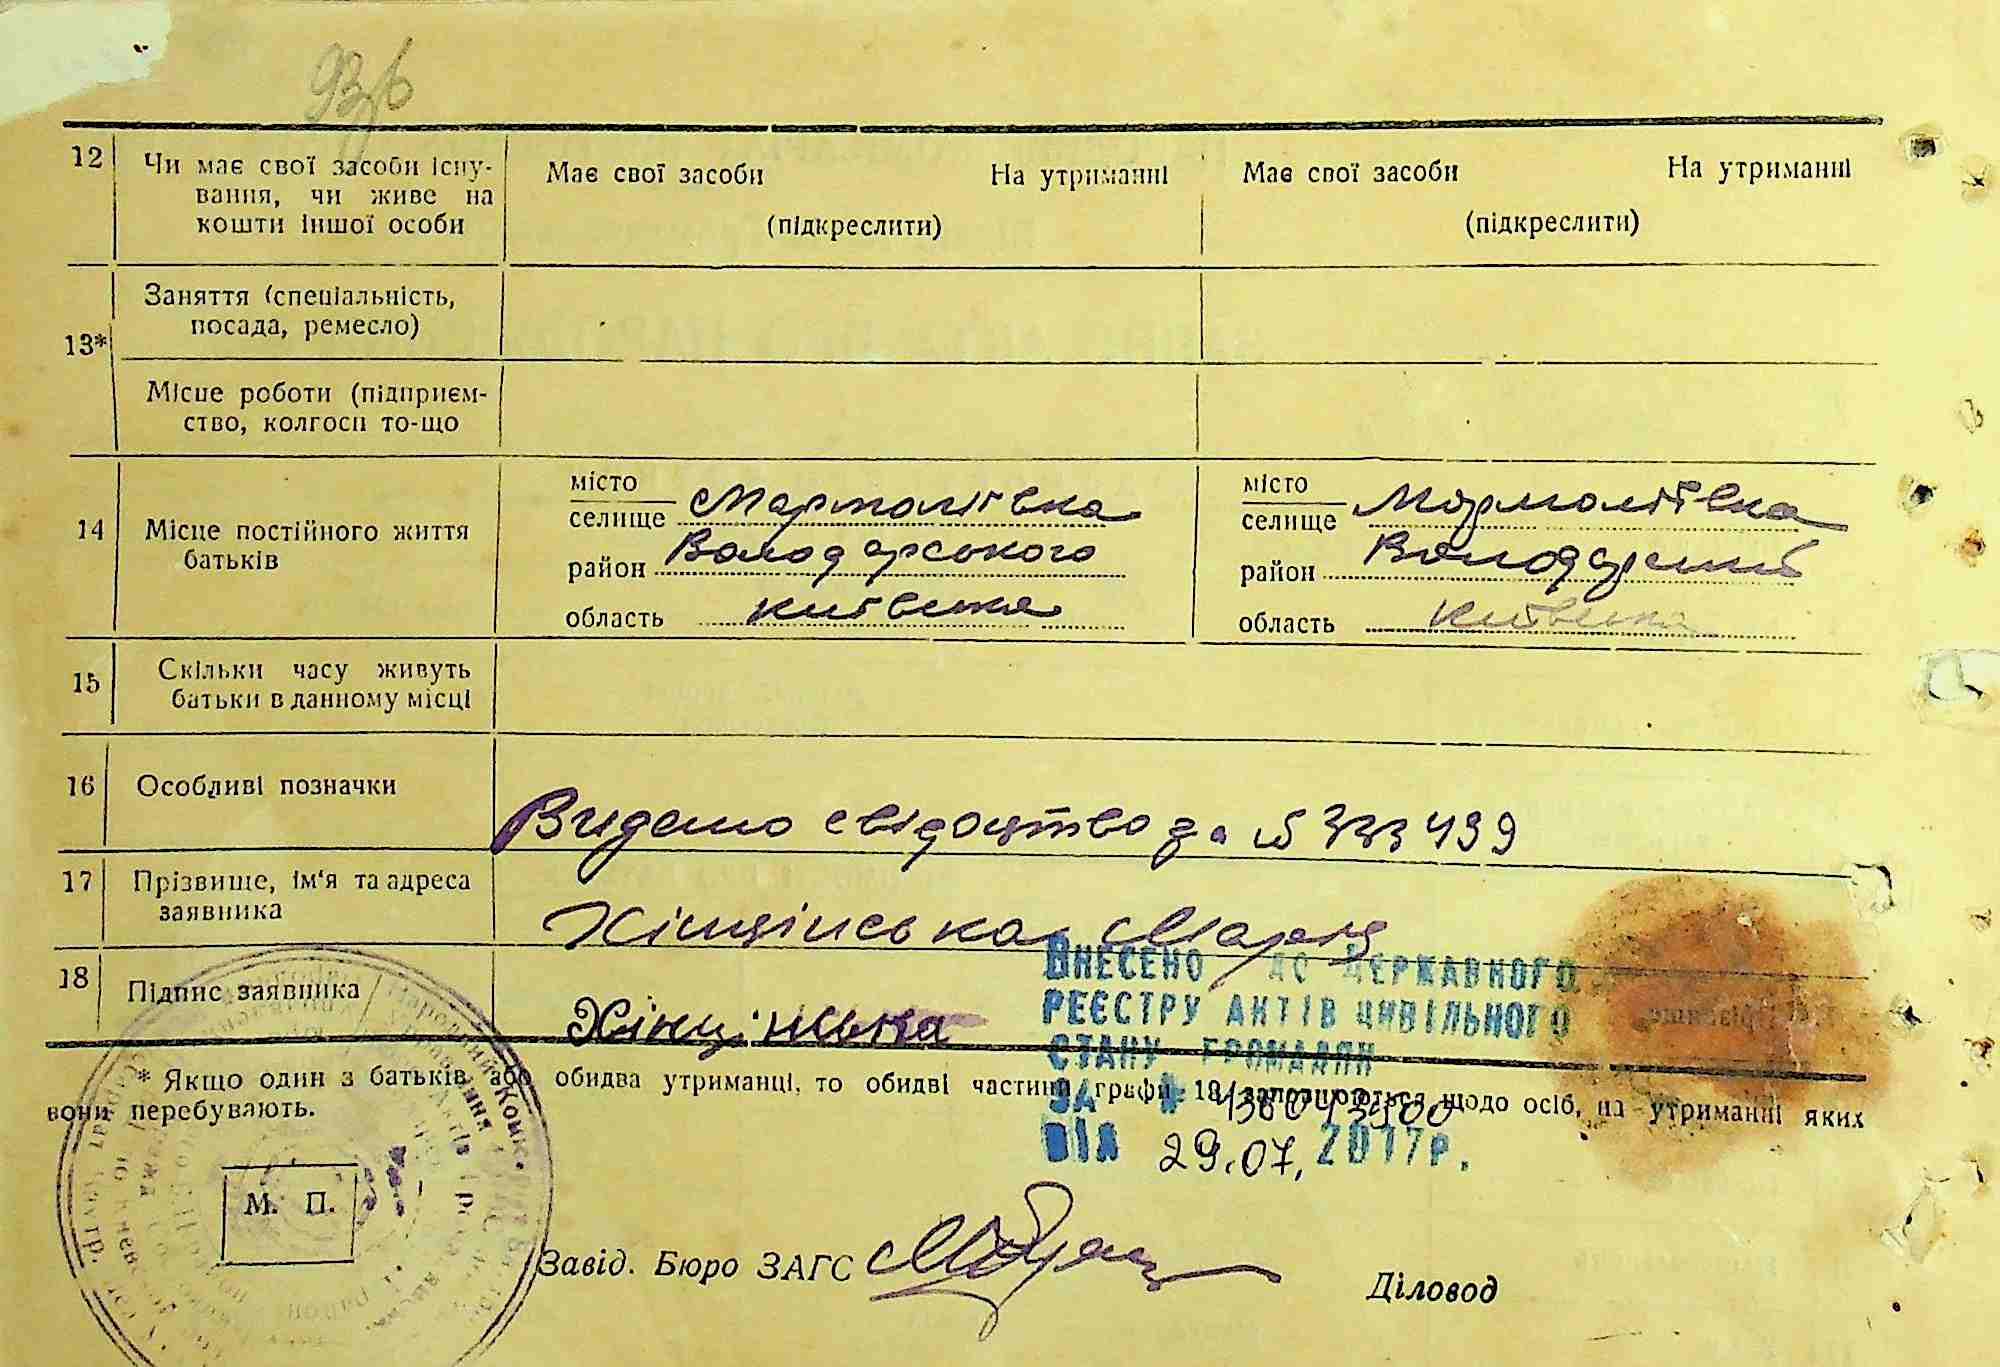 12 Чи має свої засоби існу-
вання, чи живе на
кошти іншої особи
Має свої засоби На утриманні
(підкреслити)
Має свої засоби На утриманні
(підкреслити)
13*
Заняття (спеціальність,
посада, ремесло)
Місце роботи (підприєм-
ство, колгосп то-що
14 Місце постійного життя
батьків
місто
селище Мармоліївка
район Володарського
область Київська
місто
селище Мармоліївка
район Володарський
область Київська
15 Скільки часу живуть
батьки в данному місці
16 Особливі позначки
Видано свідоцтво за № 333439
17 Прізвище, ім'я та адреса
заявника
Хінцінська Марія
18 Підпис заявника
Хінцінська
Внесено до Державного
реєстру актів цивільного
стану громадян
за №
від 29.07. 2017р.
* Якщо один з батьків або обидва утриманці, то обидві частини графи заповнюються щодо осіб, на утриманні яких
вони перебувають.
М. П.
Завід. Бюро ЗАГС
Діловод